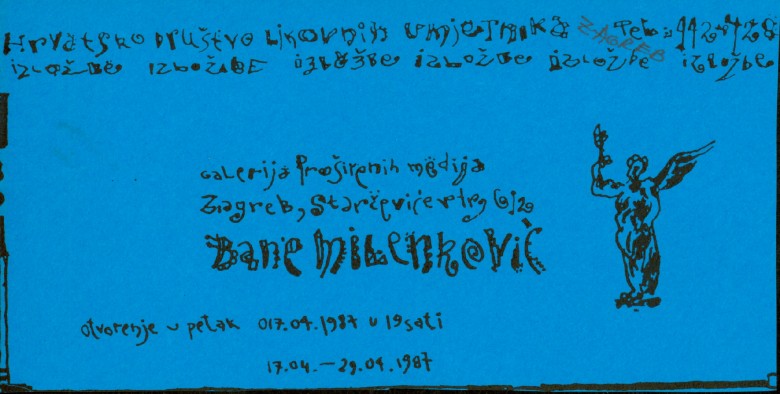 Hrvatsko Društvo Likovnih Umjetnika ZAGREB Tel:
izložbe izložbe izložbe izložbe izložbe izložbe
Galerija Proširenih medija
Zagreb, Starčevićev trg
Bane Milenković
otvorenje u petak 017.04.1987 u 19 sati
17.04.—29.04.1987